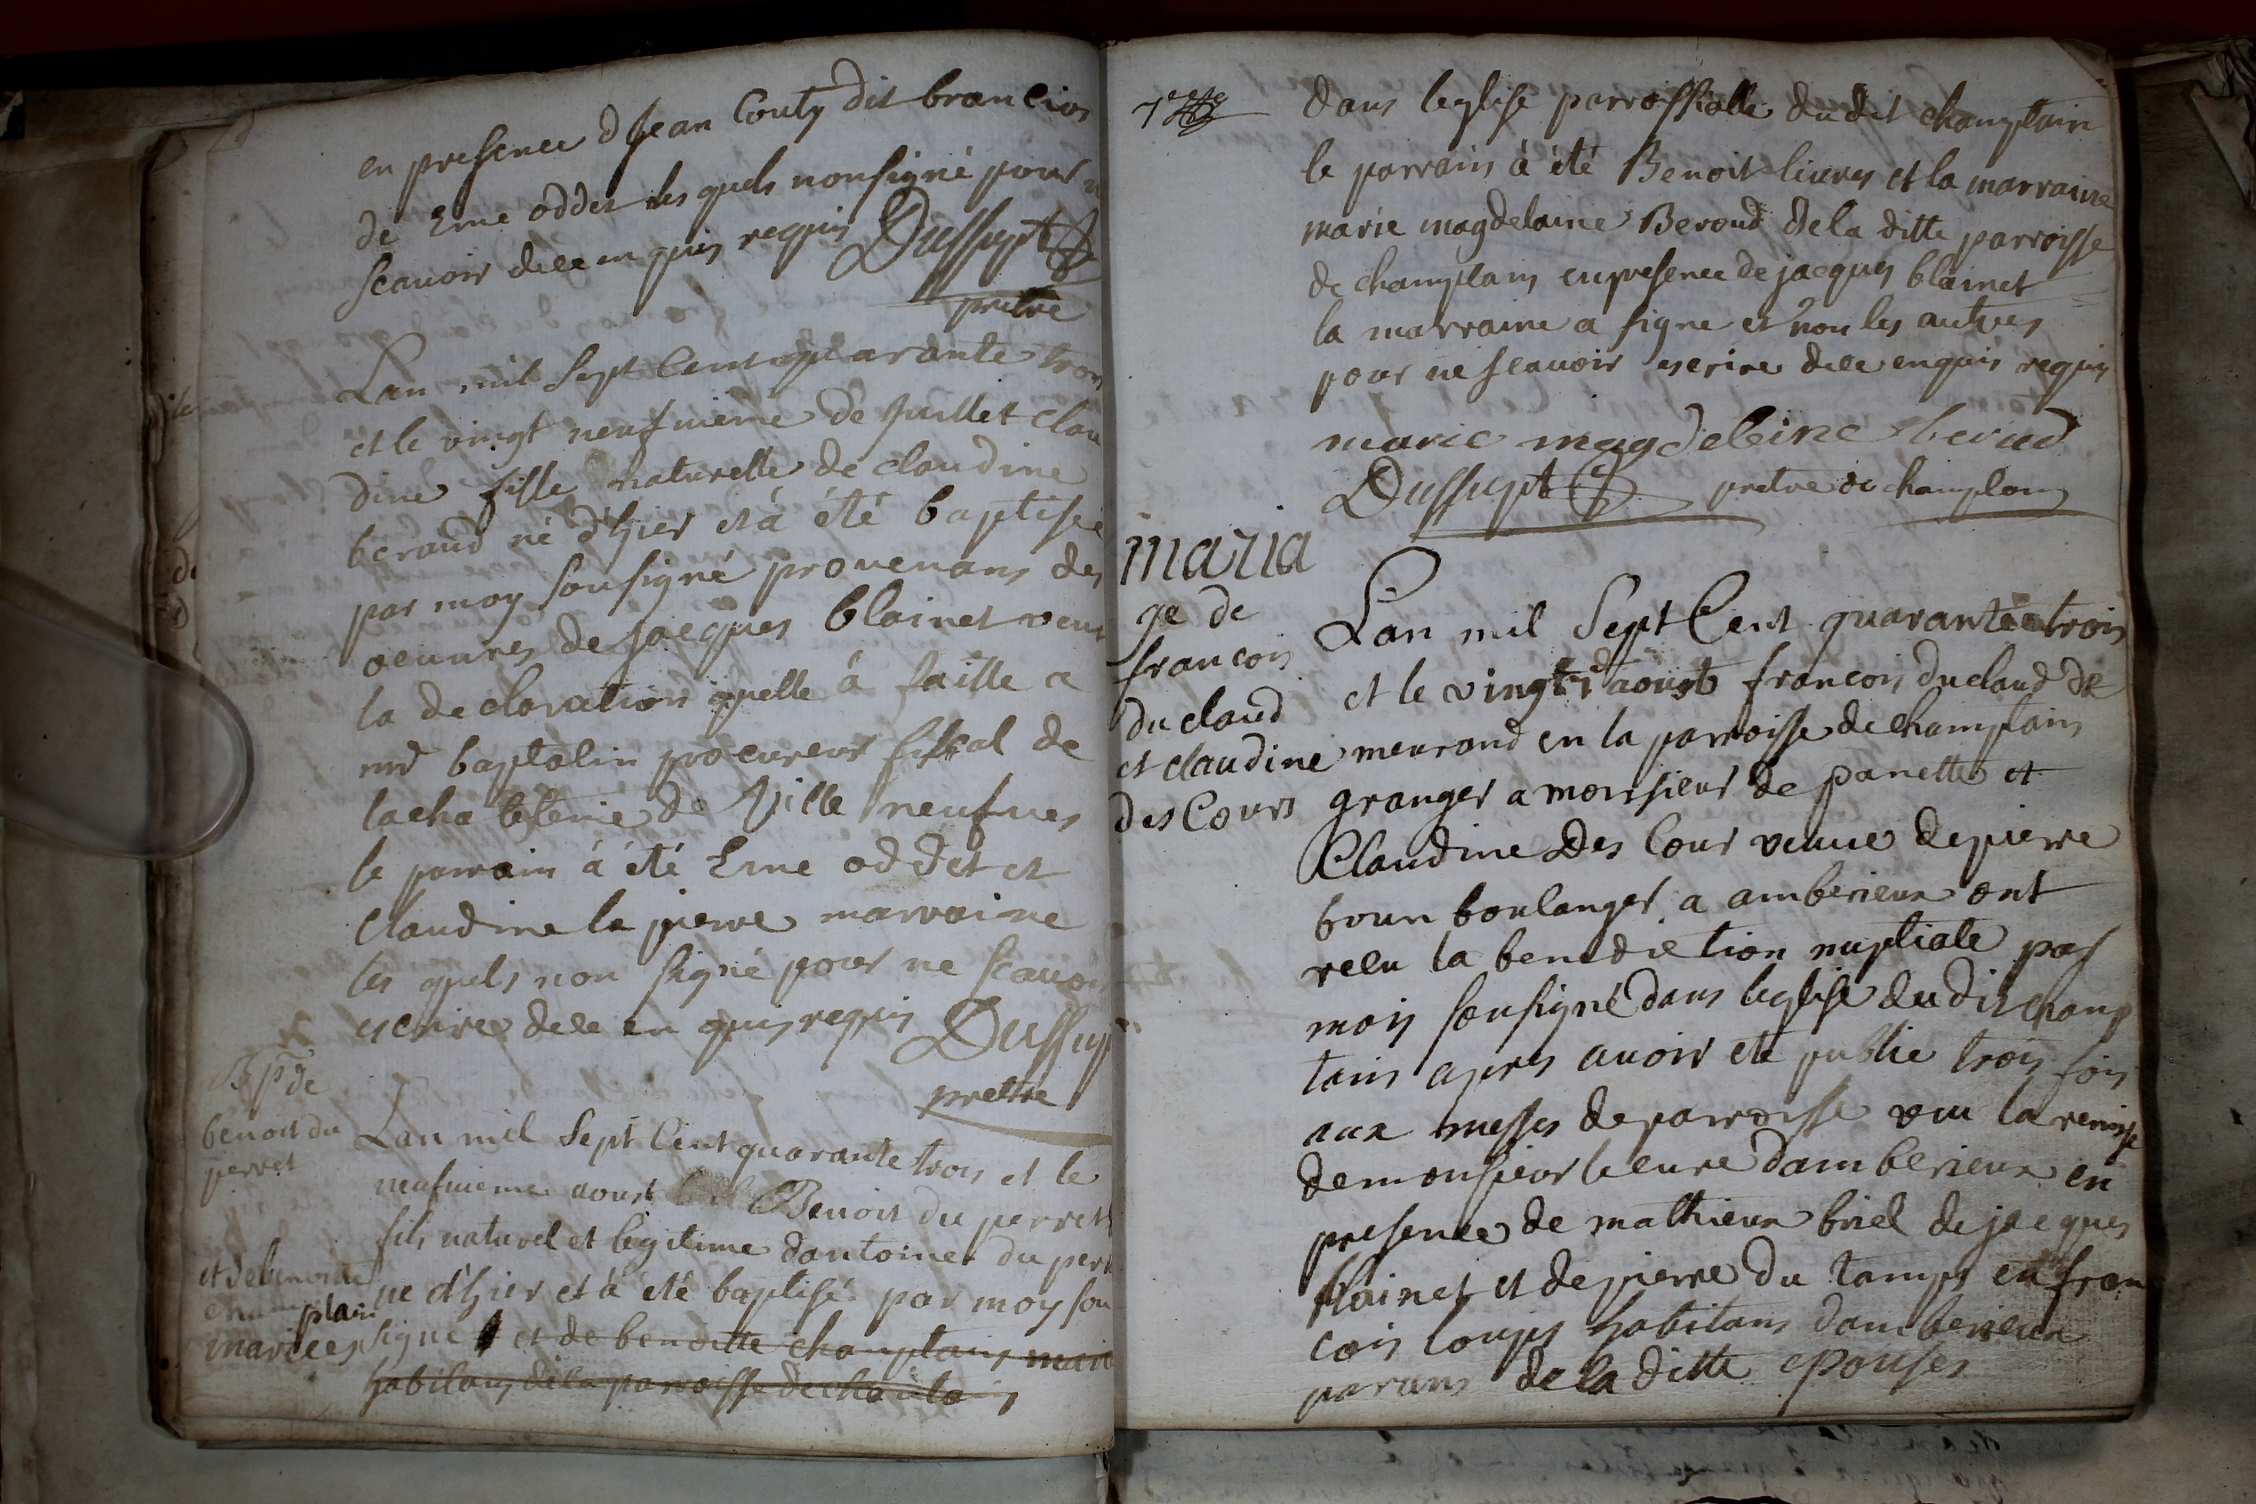 en presence d Jean Couty dit brancion
de Eme oddet les quels nonsigné pour n
scauoir dece en quis requis Dussupt
pretre
Lan mil Sept Cent quarante trois
et le vingt neufuieme de Juillet clau
dine fille naturelle de claudine
beraud né d'hier et à été baptisée
par moy sousigné prouenans des
oeuures de jacques blainet veu
la declaration quelle à faitte a
mr baptalin procureur fiscal de
lacha telenie de Ville neufues
le parrain à été Eme oddet et
claudine la pierre marraine
les quels non signé pour ne scauoi
escrire dece en quis requis Dussup
prettre
Bp^e de
benoit du
perret
Lan mil Sept Cent quarante trois et le
neufuieme aoust Benoit du perret
fils naturel et legitime dantoine du perr
ne d'hier et à été baptisé par moy sou
signé et de benoitte champtains mari
habitans dela parroisse de chäntains
et de benoitte
cham plain
mariees
7
dans leglise parrossialle dudit champtain
le parrain à été Benoit liures et la marraine
marie magdelaine Beroud de la ditte parroisse
de champlain en presence de jacques blainet
la marraine a signe et non les autres
pour ne scauoir escrire dece enquis requis
marie magdeleine berud
Dussupt pretre de champlain
maria
ge de
francois
du claud
et claudine
des Cours
Lan mil Sept Cent quarante trois
et le vingt aoust francois du claud de
meurand en la parroisse de champtains
granger a monsieur de panette et
Claudine Des Cour veuue de pierre
brun boulanger a amberieux ont
recu la benediction nuptiale par
moy sousigné dans leglise dudit champ
tain apres auoir eté publie trois fois
aux messes de parroisse veu la remisse
de monsieur le cure damberieux en
presence de mathieux briel de jacques
blainet et de pierre du tamps en fran
cois loups habitans damberieux
parans de la ditte epouses